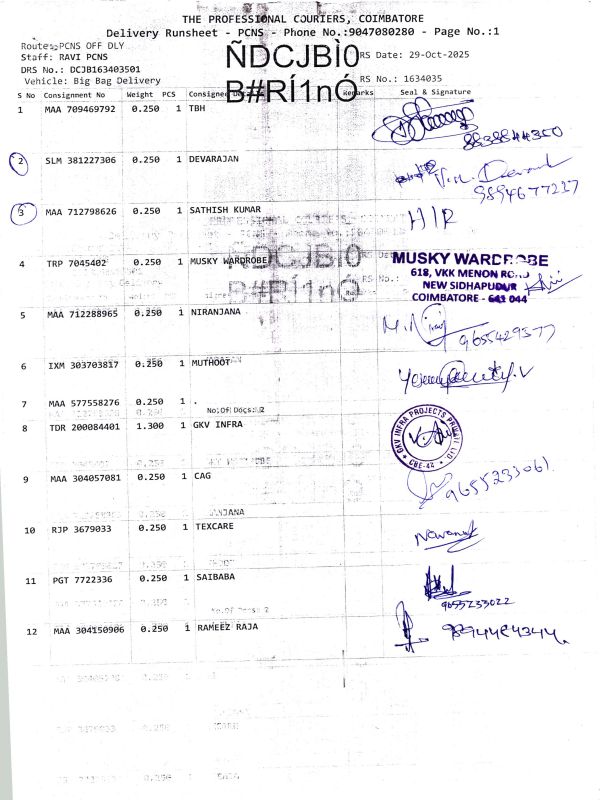 THE PROFESSIONAL COURIERS, COIMBATORE
Delivery Runsheet - PCNS - Phone No.:9047080280 - Page No.:1
Route: PCNS OFF DLY
Staff: RAVI PCNS
DRS No.: DCJB163403501
Vehicle: Big Bag Delivery
ÑDCJBÌ0
B#RÍ1nÓ
RS Date: 29-Oct-2025
RS No.: 1634035
S No Consignment No Weight PCS Consignee Details Remarks Seal & Signature
1 MAA 709469792 0.250 1 TBH
8838844350
2 SLM 381227306 0.250 1 DEVARAJAN
9894677217
3 MAA 712798626 0.250 1 SATHISH KUMAR
HIR
ÑDCJBÌ0
B#RÍ1nÓ
4 TRP 7045402 0.250 1 MUSKY WARDROBE
MUSKY WARDROBE
618, VKK MENON ROAD
NEW SIDHAPUDUR
COIMBATORE - 641 044
5 MAA 712288965 0.250 1 NIRANJANA
9655429377
6 IXM 303703817 0.250 1 MUTHOOT
7 MAA 577558276 0.250 1 .
No.Of Docs: 2
8 TDR 200084401 1.300 1 GKV INFRA
GKV INFRA PROJECTS PRIVATE LTD.
CBE-44
9 MAA 304057081 0.250 1 CAG
9655233061
10 RJP 3679033 0.250 1 TEXCARE
11 PGT 7722336 0.250 1 SAIBABA
9655233022
12 MAA 304150906 0.250 1 RAMEEZ RAJA